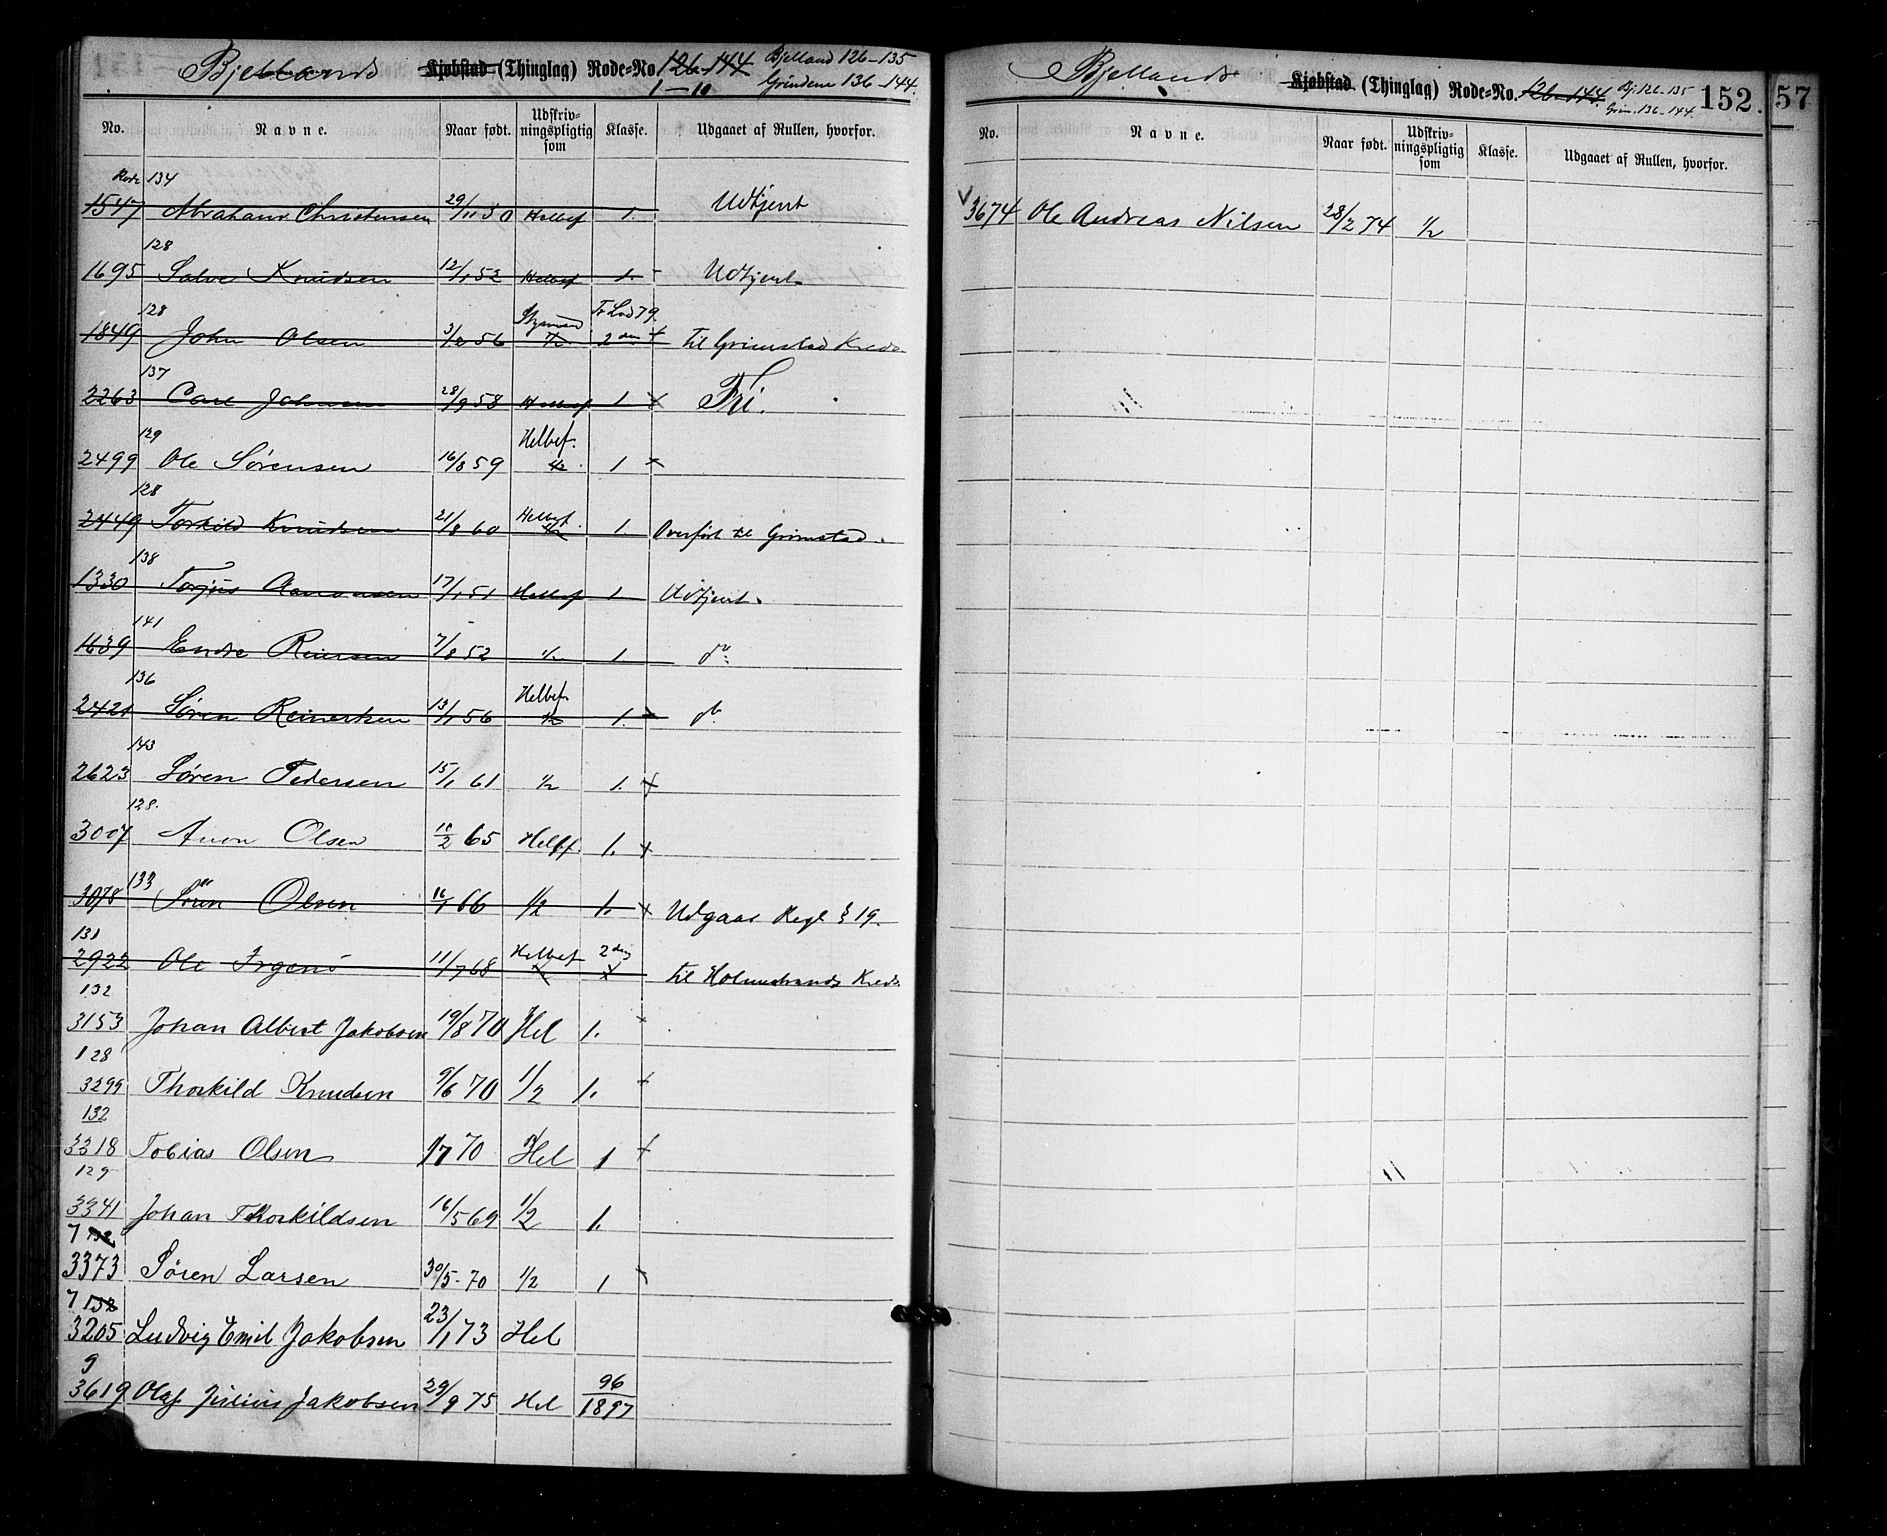 Bjellands Kjøbstad (Thinglag) Rode-No. 126-144 Bjelland 126-135
1-10 Grindem 136-144
No. Navne. Naar født. Udskrivningspligtig som Klasse. Udgaaet af Rullen, hvorfor.
Rode 134
1547 Abraham Christensen 29/11 50 Helbef 1. Udtjent
128
1695 Salve Knudsen 12/1 52 Helbef 1. Udtjent.
128 Tr Lod 79.
1849 John Olsen 3/2 56 Styrmand 1/2 2den Til Grimstad Kreds.
137
2263 Carl Johnsen 28/9 58 Helbef 1 x Fri.
129 Helbef.
2499 Ole Sørensen 16/8 59 1/2 1 x
128
2449 Torkild Knudsen 21/8 60 Helbef. 1/2 1. Overført til Grimstad.
138
1330 Torjus 17/1 51 Helbef 1. Udtjent.
141
1639 Endre Reiersen 7/8 52 1/2 1. do
136 Helbef
2421 Søren Reinertsen 13/1 56 1/2 1. x do
143
2623 Søren Pedersen 15/1 61 1/2 1. x
128.
3007 Aven Olsen 10/2 65 Helbf. 1. x
133
3078 Søren Olsen 16/1 66 1/2 1. x Udgaar Regl § 19.
131 Helbef 2den
2922 Ole 11/7 68 til Holmestrands Kreds
132
3153 Johan Albert Jakobsen 19/8 70 Hel 1. x
128
3299 Thorkild Knudsen 9/6 70 1/2 1. x
132
3318 Tobias Olsen 1/7 70 Hel 1 x
129
3341 Johan Thorkildsen 16/5 69 1/2 1.
7 132
3373 Søren Larsen 30/5-70 1/2 1
7 132
3205 Ludvig Emil Jakobsen 23/1 73 Hel
9
3619 Olaf Julius Jakobsen 29/9 75 Hel 96/1897
Bjellands Kjøbstad (Thinglag) Rode-No. 126-144 Bj. 126-135 152. 57
Grin. 136-144.
No. Navne. Naar født. Udskrivningspligtig som Klasse. Udgaaet af Rullen, hvorfor.
V 3674 Ole Andreas Nilsen 28/2 74 1/2